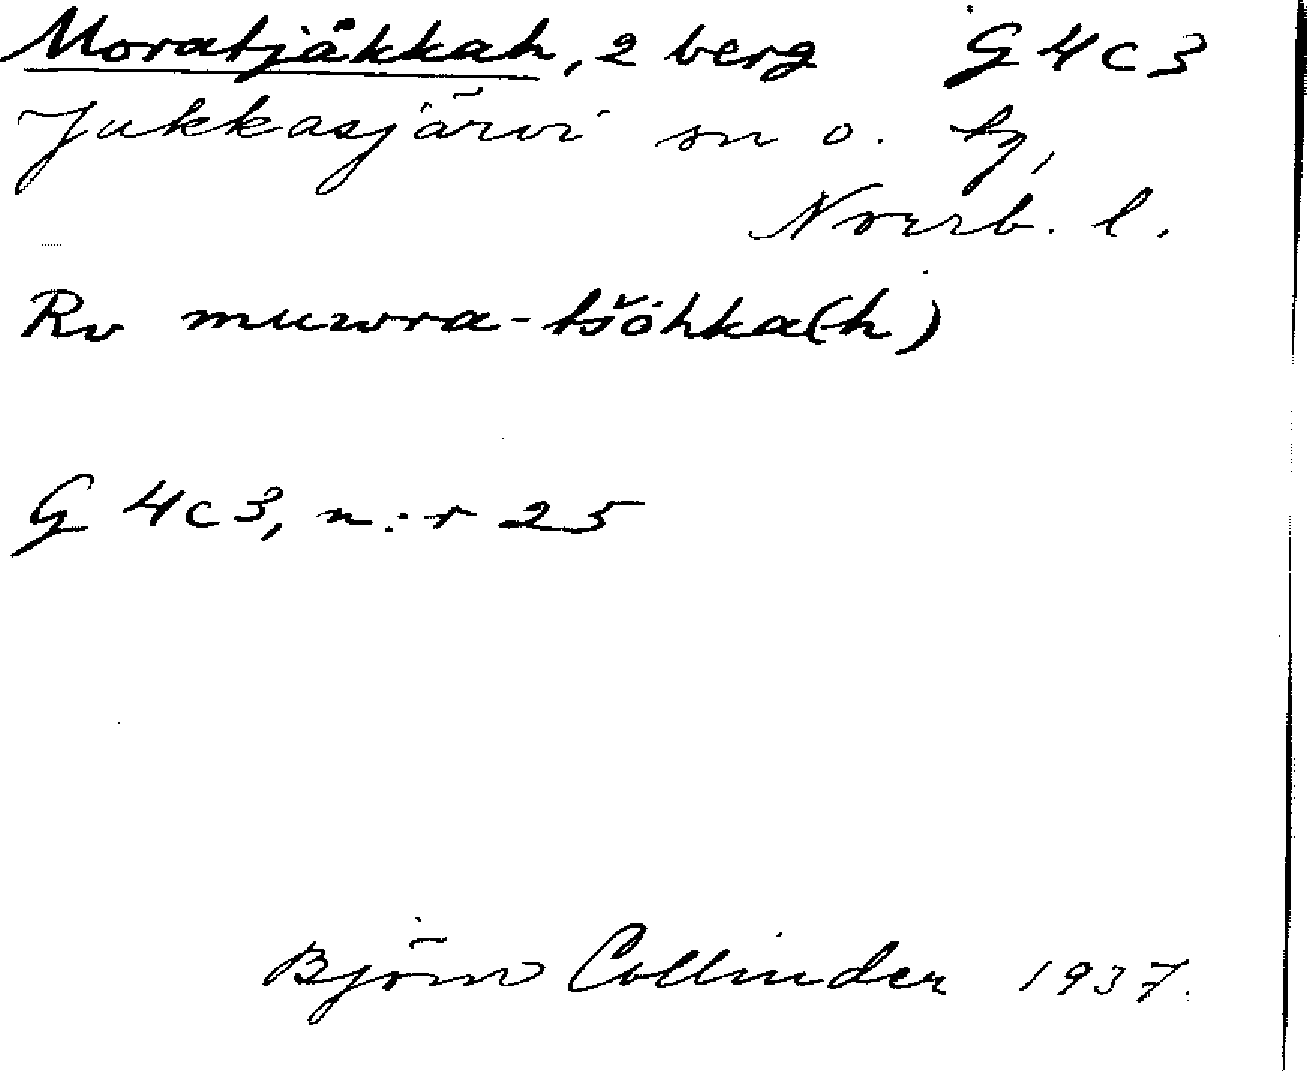 Moratjåkkah, 2 berg G 4 c 3
Jukkasjärvi sn o. tg,
Norrb. l.
Rv muwra-tšåhka(h)
G 4 c 3, n:r 25
Björn Collinder 1937.